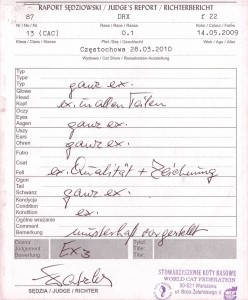 RAPORT SĘDZIOWSKI / JUDGE'S REPORT / RICHTERBERICHT
87 DRX f 22
Nr / No / Nr Rasa / Race / Rasse Kolor / Colour / Farbe
13 (CAC) 0.1 14.05.2009
Klasa / Class / Klasse Płeć / Sex / Geschlecht Wiek / Age / Alter
Częstochowa 28.03.2010
Wystawa / Cat Show / Rassekatzen-Ausstellung
Typ
Type
Typ
ganz ex.
Głowa
Head
Kopf
ex. in allen Teilen
Oczy
Eyes
Augen
ganz ex.
Uszy
Ears
Ohren
ganz ex.
Futro
Coat
Fell
ex. Qualität + Zeichnung
Ogon
Tail
Schwanz
ganz ex.
Kondycja
Condition
Kondition
ex.
Ogólne wrażenie
Comment
Bemerkung
musterhaft vorgestellt
Ocena
Judgement
Bewertung
Ex 3
Tytuł
Title
Titel
SĘDZIA / JUDGE / RICHTER
STOWARZYSZENIE KOTY RASOWE
WORLD CAT FEDERATION